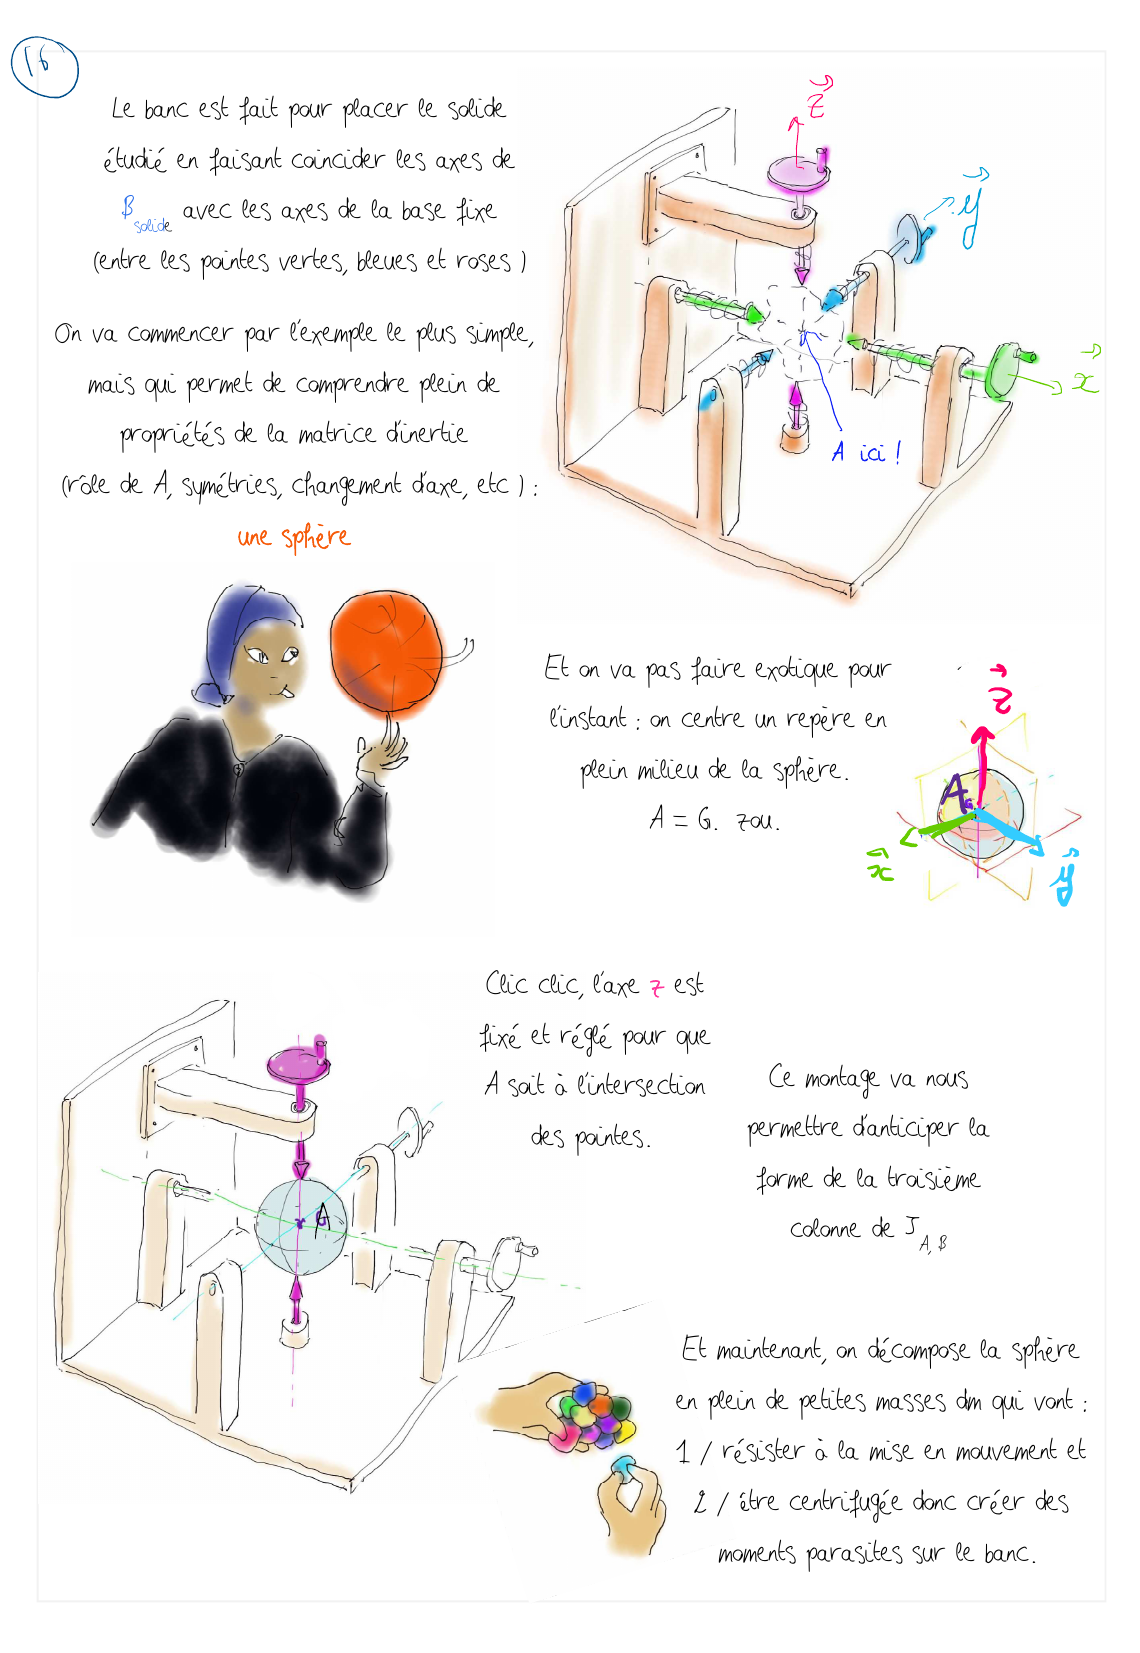 16
Le banc est fait pour placer le solide
étudié en faisant coincider les axes de
B solide avec les axes de la base fixe
(entre les pointes vertes, bleues et roses )
On va commencer par l'exemple le plus simple,
mais qui permet de comprendre plein de
propriétés de la matrice d'inertie
(rôle de A, symétries, changement d'axe, etc ) :
une sphère
z
y
x
A ici !
Et on va pas faire exotique pour
l'instant : on centre un repère en
plein milieu de la sphère.
A = G. zou.
z
A
G
x
y
Clic clic, l'axe z est
fixé et réglé pour que
A soit à l'intersection
des pointes.
A
Ce montage va nous
permettre d'anticiper la
forme de la troisième
colonne de J A, B
Et maintenant, on décompose la sphère
en plein de petites masses dm qui vont :
1 / résister à la mise en mouvement et
2 / être centrifugée donc créer des
moments parasites sur le banc.